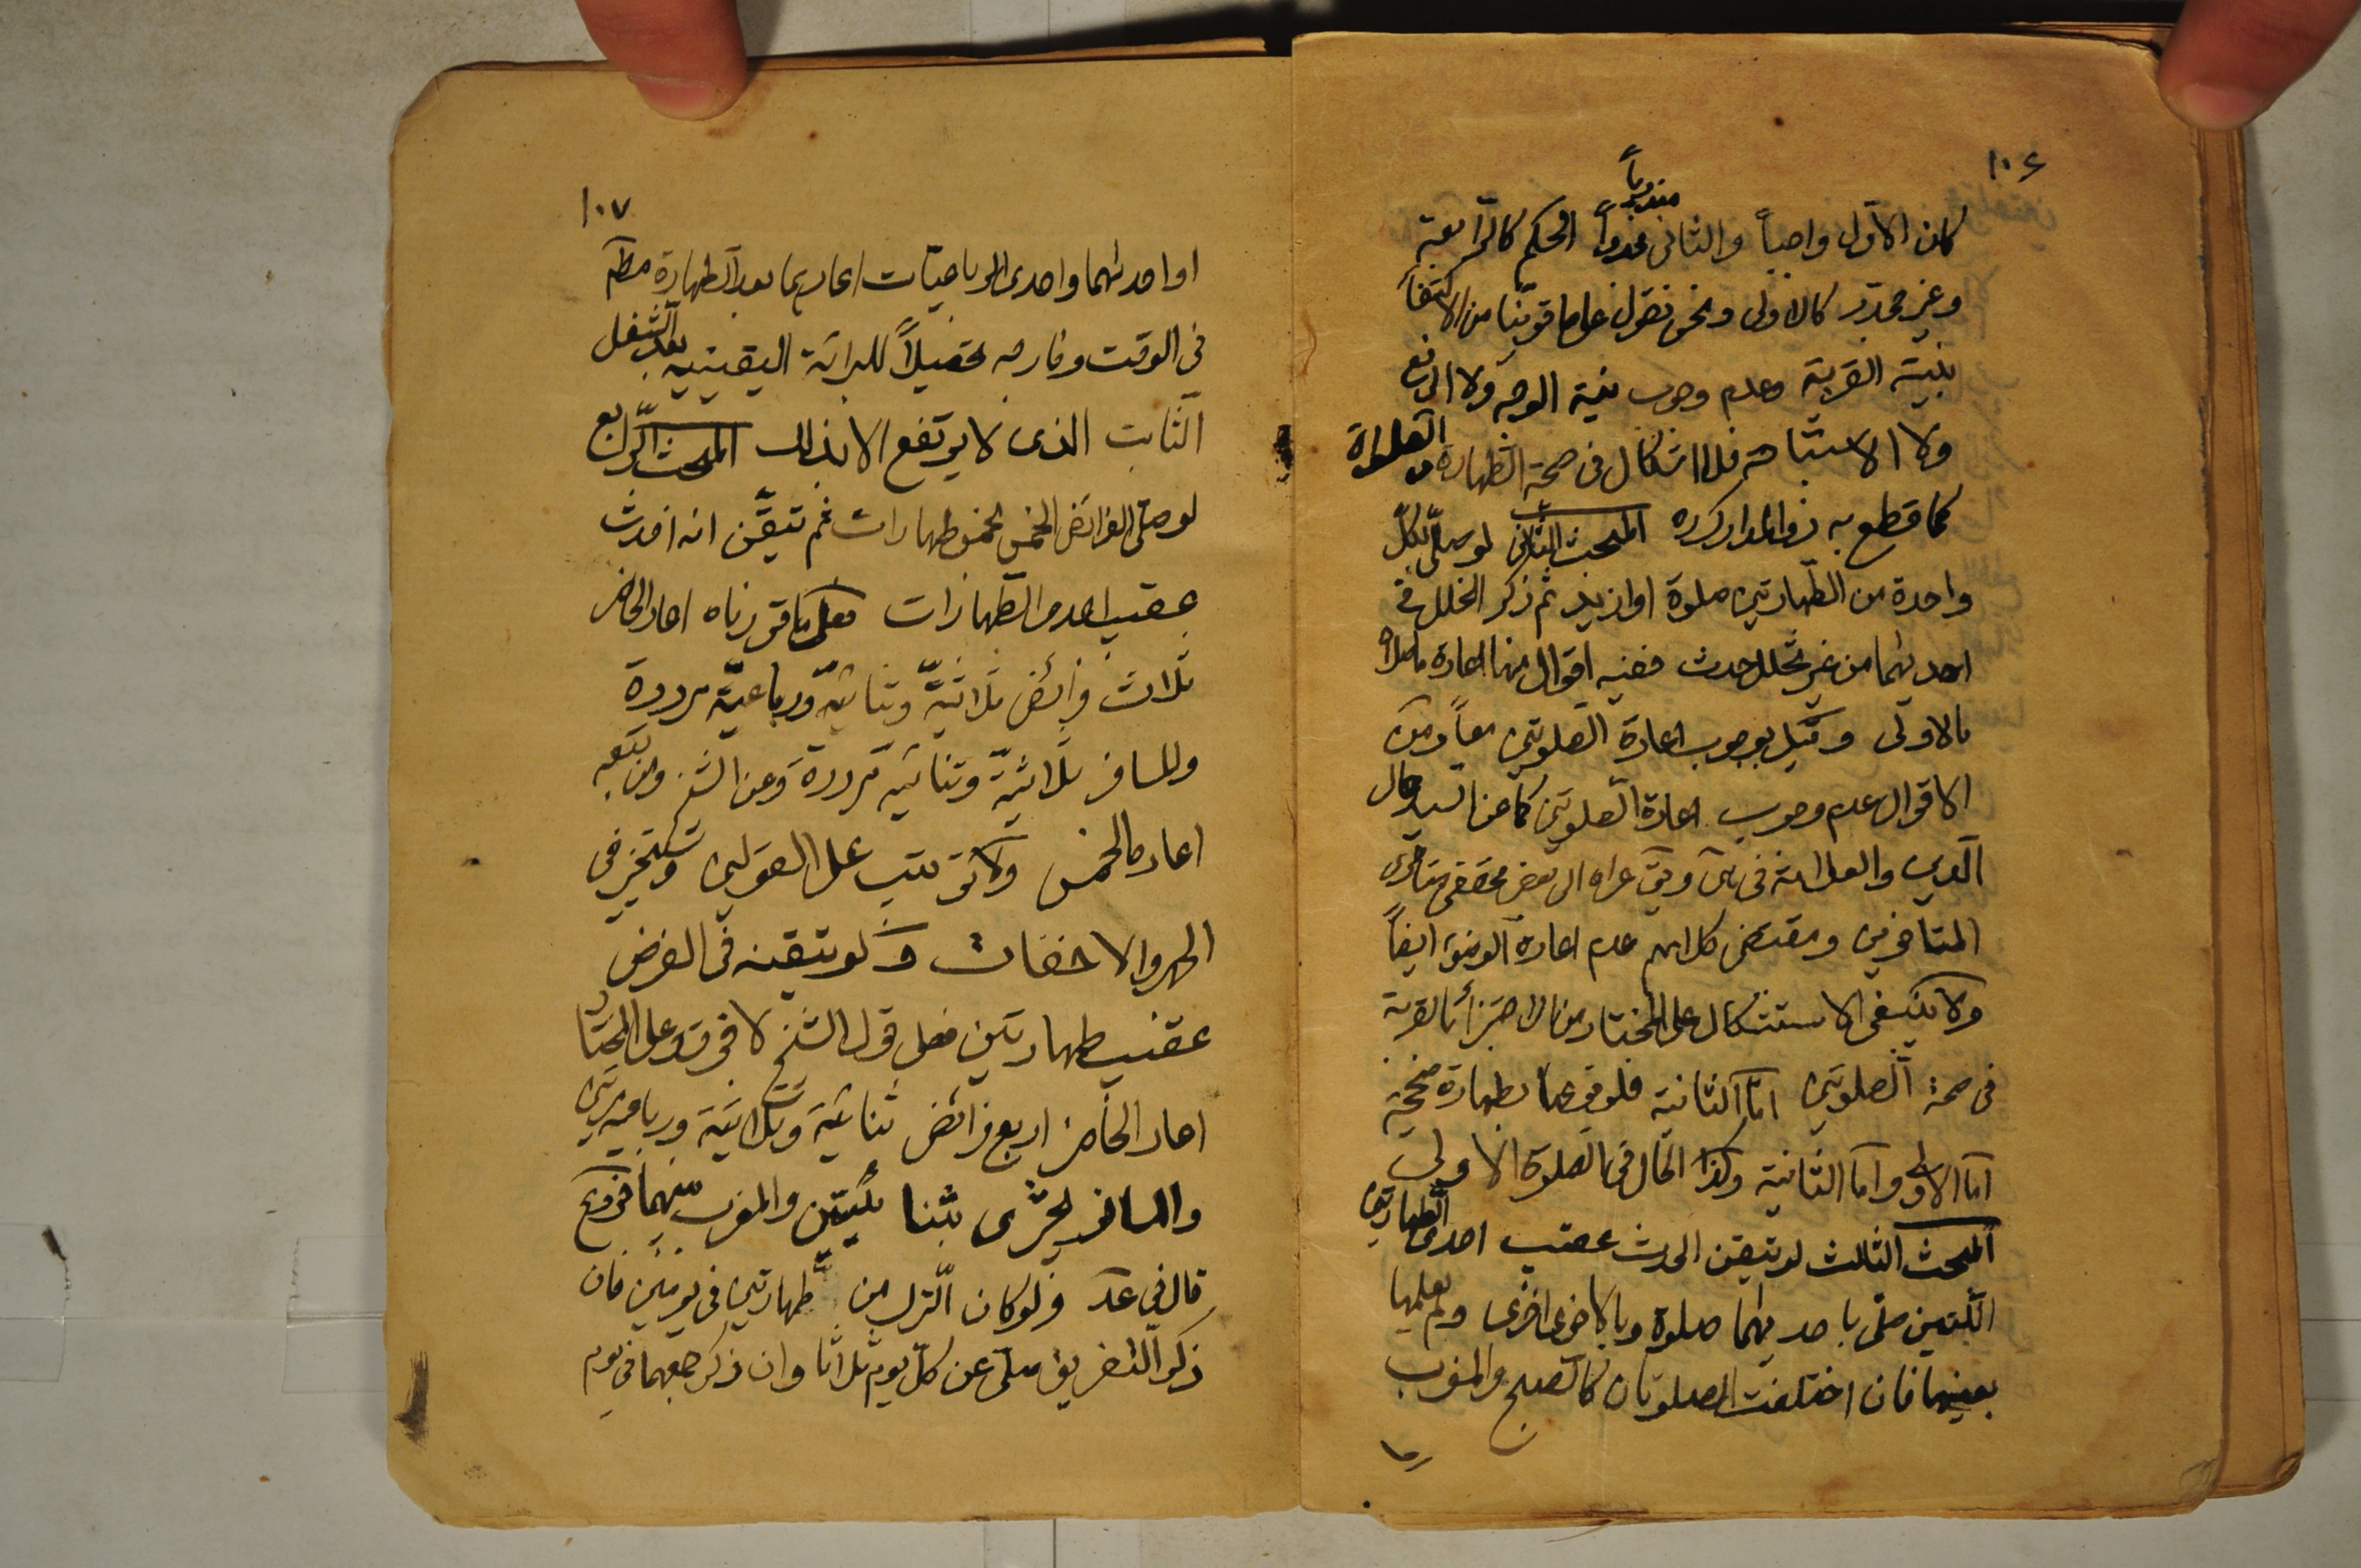 ١٠٦
كان الاوّل واجباً والثانى مندوباً الحكم كالرّابعة
وغير مجدّد كالاولى ونحن نقول على ما قوّينا من الاكتفآء
بنيّة القربة وعدم وجوب نية الوجه ولا الرفع
ولا الاستباحة فلا اشكال فى صحة الطهارة والصلوة
كما قطع به فى المدارك ره المبحث الثانى لو صلّى بكلّ
واحدة من الطّهارتين صلوة اوازيد ثم ذكر الخلل فى
احديهما من غير تخلل حدث ففيه اقوال منها اعادة ما صلاه
بالاولى وقيل بوجوب اعادة الصلوتين معاً ومن
الاقوال عدم وجوب اعادة الصلوتين كما عن السيد جمال
الدين والعلامة فى وعزاه الى بعض محققى
المتاخرين ومقتضى كلامهم عدم اعادة الوضوء ايضاً
ولا ينبغى الاستشكال على المختار من الاجتزآء بالقربة
فى صحة الصلوتين امّا الثانية فلوقوعها بطهارة صحيحة
امّا الاولى وامّا الثانية وكذا الحال فى الصلوة الاولى
المبحث الثالث لو تيقن الحدث عقيب احدى الطهارتين
اللّتين صلّى باحديهما صلوة وبالاخرى اخرى ولم يعلمها
بعينها فان اختلفت الصلوتان كالصبح والمغرب
١٠٧
او احديهما واحدى الرباعيّات اعادهما بعد الطهارة مطلقا
فى الوقت وخارجه تحصيلاً للبرائة اليقينيه بعد الشغل
الثابت الذى لا يرتفع الا بذلك المبحث الرّابع
لو صلّى الفرائض الخمس بخمس طهارات ثم تيقّن انه احدث
عقيب احدى الطّهارات فعلى ما قررناه اعاد الحاضر
ثلاث فرائض ثلاثيّة وثنائيّة ورباعيّة مرددة
وللمسافر ثلاثيّة وثنائيه مرددة وعن الشيخ ومن تبعه
اعادة الخمس ولا ترتيب على القولين ويتخيّر فى
الجهر والاخفات ولو تيقنه فى الفرض
عقيب طهارتين فعلى قول الشيخ لا فرق وعلى المختار
اعاد الحاضر اربع فرائض ثنائيّة وثلاثيّة ورباعيتين
والمسافر يجتزى بثنائيتين والمغرب بينهما فروع
قال فى عد ولو كان الترك من طهارتين فى يومين فان
ذكر التفريق صلى عن كلّ يوم ثلاثا وان ذكر جمعهما فى يوم